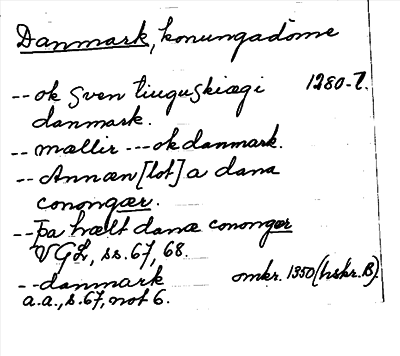 Danmark, konungadöme
--ok sven tiuguskiægi 1280-t.
danmark.
--mællir ---ok danmark.
--Annæn[lot] a dana
conongær.
--þa hælt danæ conongær
VGL, ss. 67, 68.
--danmark omkr. 1350 (hskr. B).
a.a., s. 67, not 6.